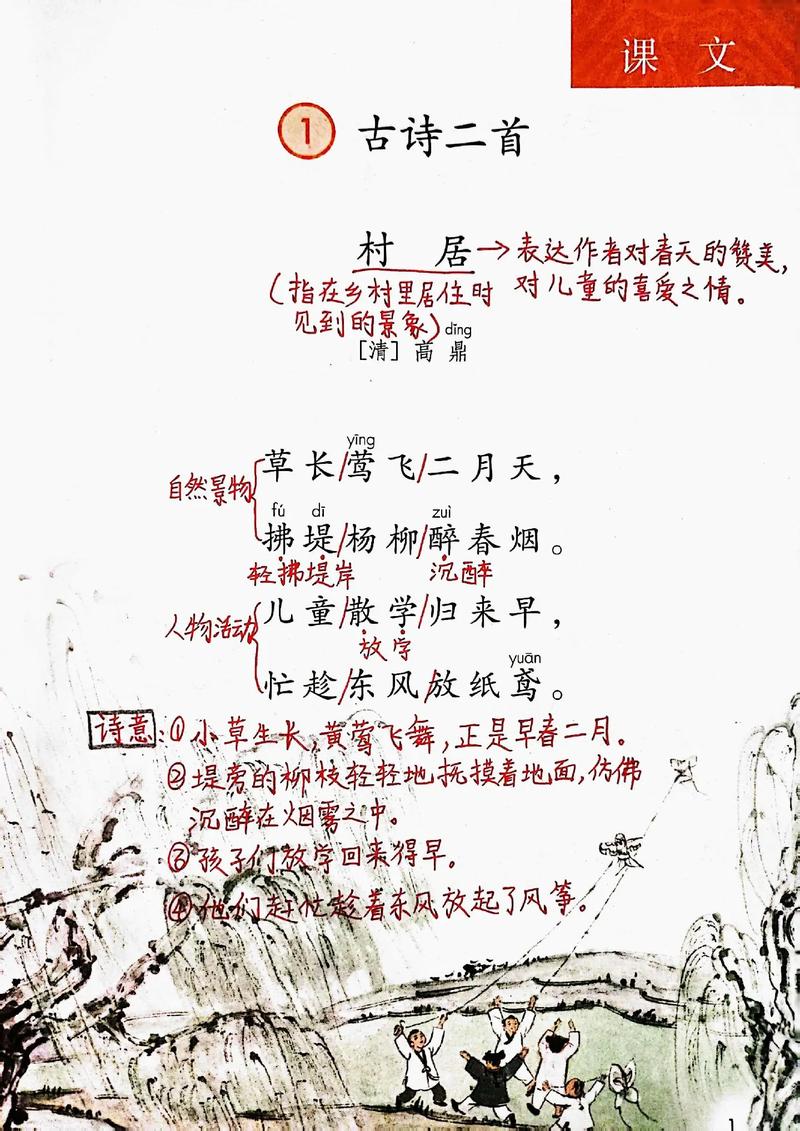 课 文
1 古诗二首
村 居→表达作者对春天的赞美,
(指在乡村里居住时 对儿童的喜爱之情。
见到的景象)
dīng
[清] 高 鼎
yīng
草长/莺飞/二月天，
自然景物
fú dī zuì
拂堤/杨柳/醉春烟。
轻拂堤岸 沉醉
儿童/散学/归来早，
人物活动
放学
yuān
忙趁/东风/放纸鸢。
诗意:①小草生长,黄莺飞舞,正是早春二月。
②堤旁的柳枝轻轻地抚摸着地面,仿佛
沉醉在烟雾之中。
③孩子们放学回来得早。
④他们赶忙趁着东风放起了风筝。
1